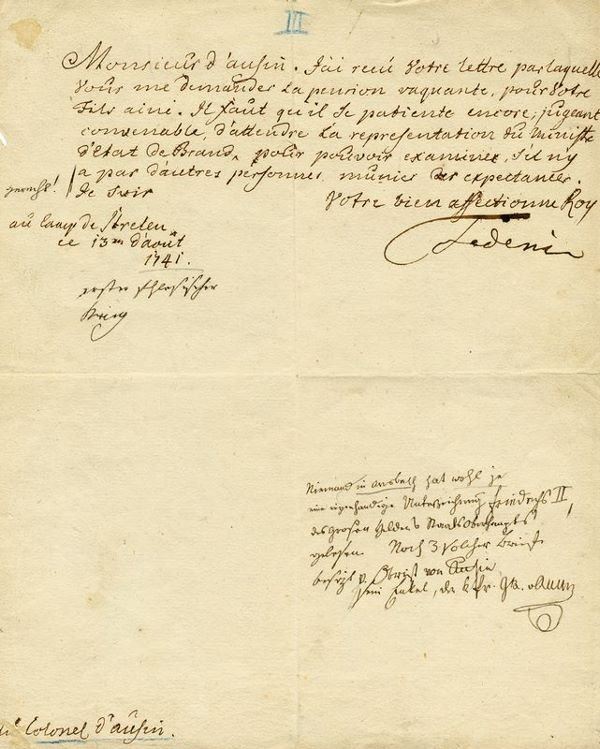 III
Monsieur d'ausin. J'ai recû Votre lettre par laquelle
Vous me demandes La pension vaquante, pour Votre
Fils ainé. Il faut qu'il se patiente encore, jugeant
convenable, d'attendre La representation du Ministre
d'Etat de Brand, pour pouvoir examiner, s'il n'y
a pas d'autres personnes munies des expectances.
de Soir
Votre bien affectionné Roy
au Camp de Strelen
ce 13me d'août
1741.
erster schlesischer
Krieg
Niemand in Ansbach hat wohl je
eine eigenhändige Unterzeichnung Friedrichs II,
des großen Helden Staatsoberhaupts
gelesen. Noch 3 solcher Briefe
besitzt v. Obrist von Ausin
sein Enkel, der
Colonel d'ausin.